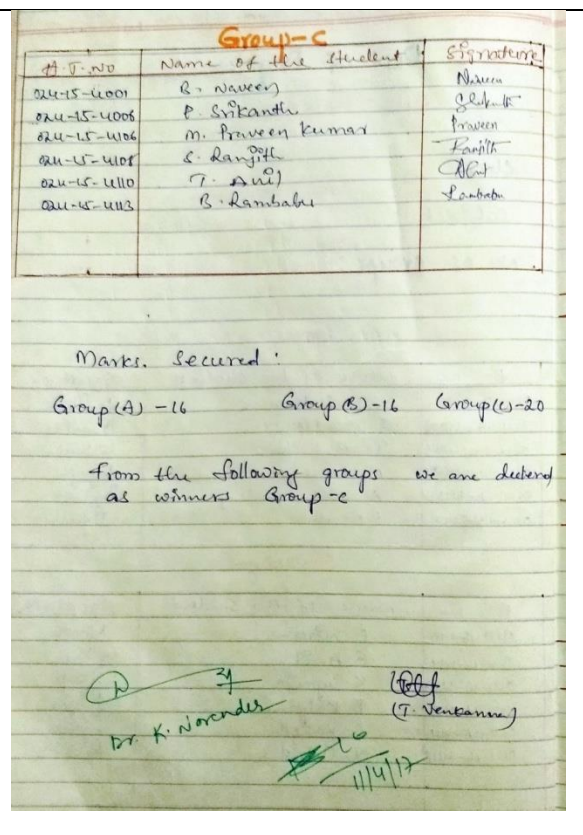 Group-C
H.T.NO Name of the student Signature
024-15-4001 B. Naveen Naveen
024-15-4006 P. Srikanth Srikanth
024-15-4106 M. Praveen Kumar Praveen
024-15-4108 S. Ranjith Ranjith
024-15-4110 T. Anil
024-15-4113 B. Rambabu Rambabu
Marks. Secured :
Group (A) - 16 Group (B) - 16 Group (C) - 20
From the following groups we are
as winners Group-c
Dr. K. Narender
(T. Venkanna)
11/4/17